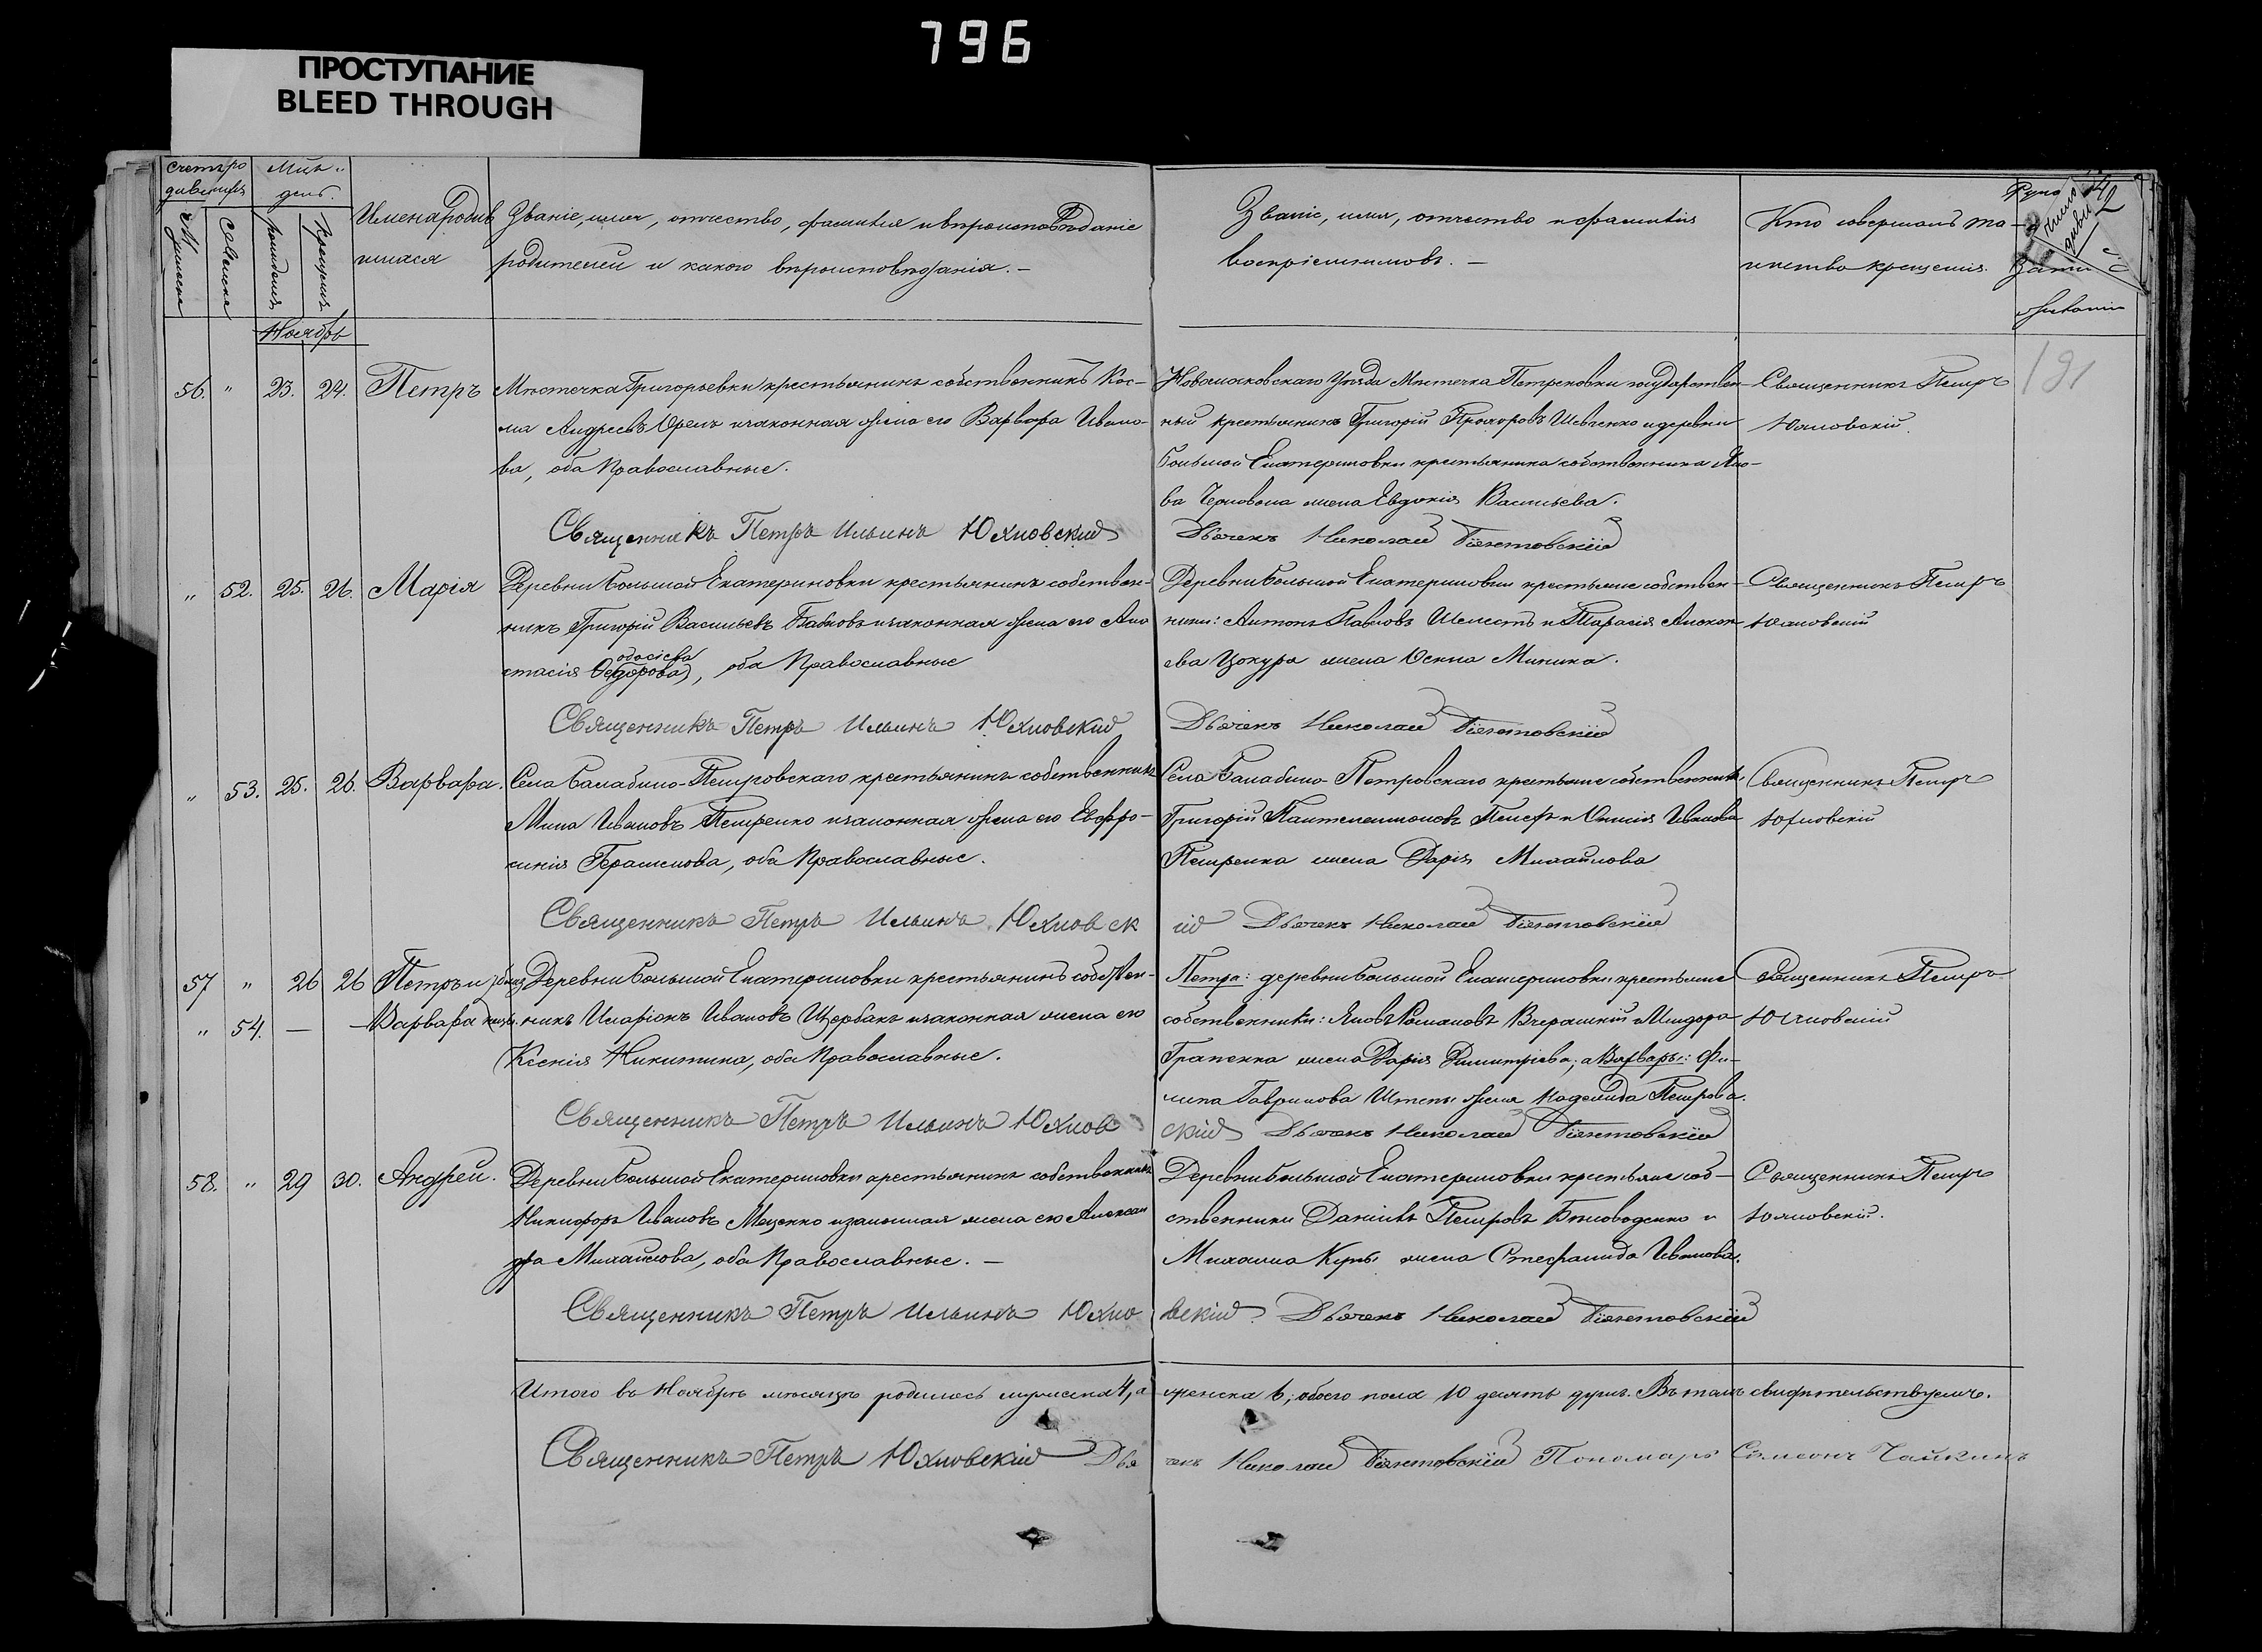 796
ПРОСТУПАНИЕ
BLEED THROUGH
Счетъ ро
дившихся
Мѣся
день.
Мужеска
Женска
рожденія
крещенія
Имена родив
шихся
Званіе, имя, отчество, фамилія и вѣроисповѣданіе
родителей и какого вѣроисповѣданія. —
Званіе, имя, отчество и фамилія
воспріемниковъ. —
Кто совершалъ та-
инство крещенія.
Ноябрь
56. " 23. 24. Петръ
Мѣстечка Григорьевки крестьянинъ собственникъ Кос-
ма Андреевъ Орелъ и законная жена его Варвара Ивано-
ва, оба Православные.
Новомосковскаго Уѣзда Мѣстечка Петриковки государствен-
ный крестьянинъ Григорій Прохоровъ Шевченко и деревни
Большой Екатериновки крестьянина собственника
жена Евдокія Васильева.
Священникъ Петръ
Юхновскій.
191
Священникъ Петръ Ильинъ Юхновскій
Дьячекъ Николай
" 52. 25. 26. Марія
Деревни Большой Екатериновки крестьянинъ собствен-
никъ Григорій Васильевъ Бабковъ и законная жена его Ана
стасія Федорова, оба Православные
одосіева
Деревни Большой Екатериновки крестьяне собствен-
ники: Антонъ Павловъ Шелестъ и Тарасія
Цокура жена Минина.
Священникъ Петръ
Юхновскій
Священникъ Петръ Ильинъ Юхновскій
Дьячекъ Николай
" 53. 25. 26. Варвара.
Села Балабино-Петровскаго крестьянинъ собственникъ
Мина Ивановъ Петренко и законная жена его Евфро-
синія Герасимова, оба Православные.
Села Балабино-Петровскаго крестьяне собственники
Григорій Пантелеимоновъ и Иванова
Петренка жена Дарія Михайлова
Священникъ Петръ
Юхновскій
Священникъ Петръ Ильинъ Юхновск
ій Дьячекъ Николай
57 " 26 26 Петръ и близ
" 54. — — Варвара нецы.
Деревни Большой Екатериновки крестьянинъ собствен-
никъ Иларіонъ Ивановъ Щербакъ и законная жена его
Ксенія Никитина, оба Православные.
Петра: деревни Большой Екатериновки крестьяне
собственники: Яковъ Романовъ Вчерашній и
жена Дарія Димитріева; а Варвары: Фи-
липа Гаврилова жена Петрова.
Священникъ Петръ
Юхновскій
Священникъ Петръ Ильинъ Юхнов
скій Дьячекъ Николай
58. " 29 30. Андрей.
Деревни Большой Екатериновки крестьянинъ собственникъ
Никифоръ Ивановъ Маценко и законная жена его Алексан
дра Михайлова, оба Православные. —
Деревни Большой Екатериновки крестьяне соб-
ственники Даніилъ Петровъ Бѣловоденко и
Михаила жена Стефанида Иванова.
Священникъ Петръ
Юхновскій.
Священникъ Петръ Ильинъ Юхно
вскій Дьячекъ Николай
Итого въ Ноябрѣ мѣсяцѣ родилось мужеска 4, а женска 6, обоего пола 10 десять душъ. Въ томъ свидѣтельствуемъ.
Священникъ Петръ Юхновскій Дья
чекъ Николай Пономарь Симеонъ Чайкинъ